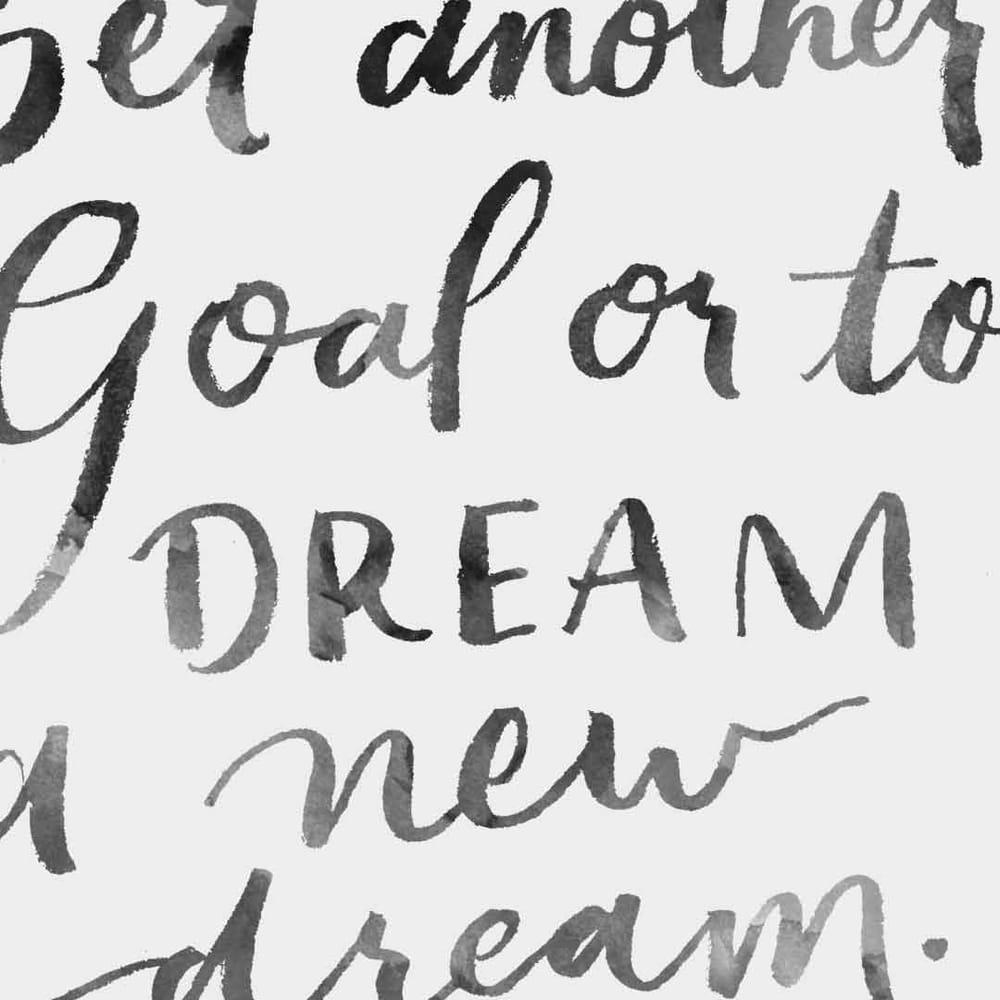 Set another
Goal or to
DREAM
a new
dream.